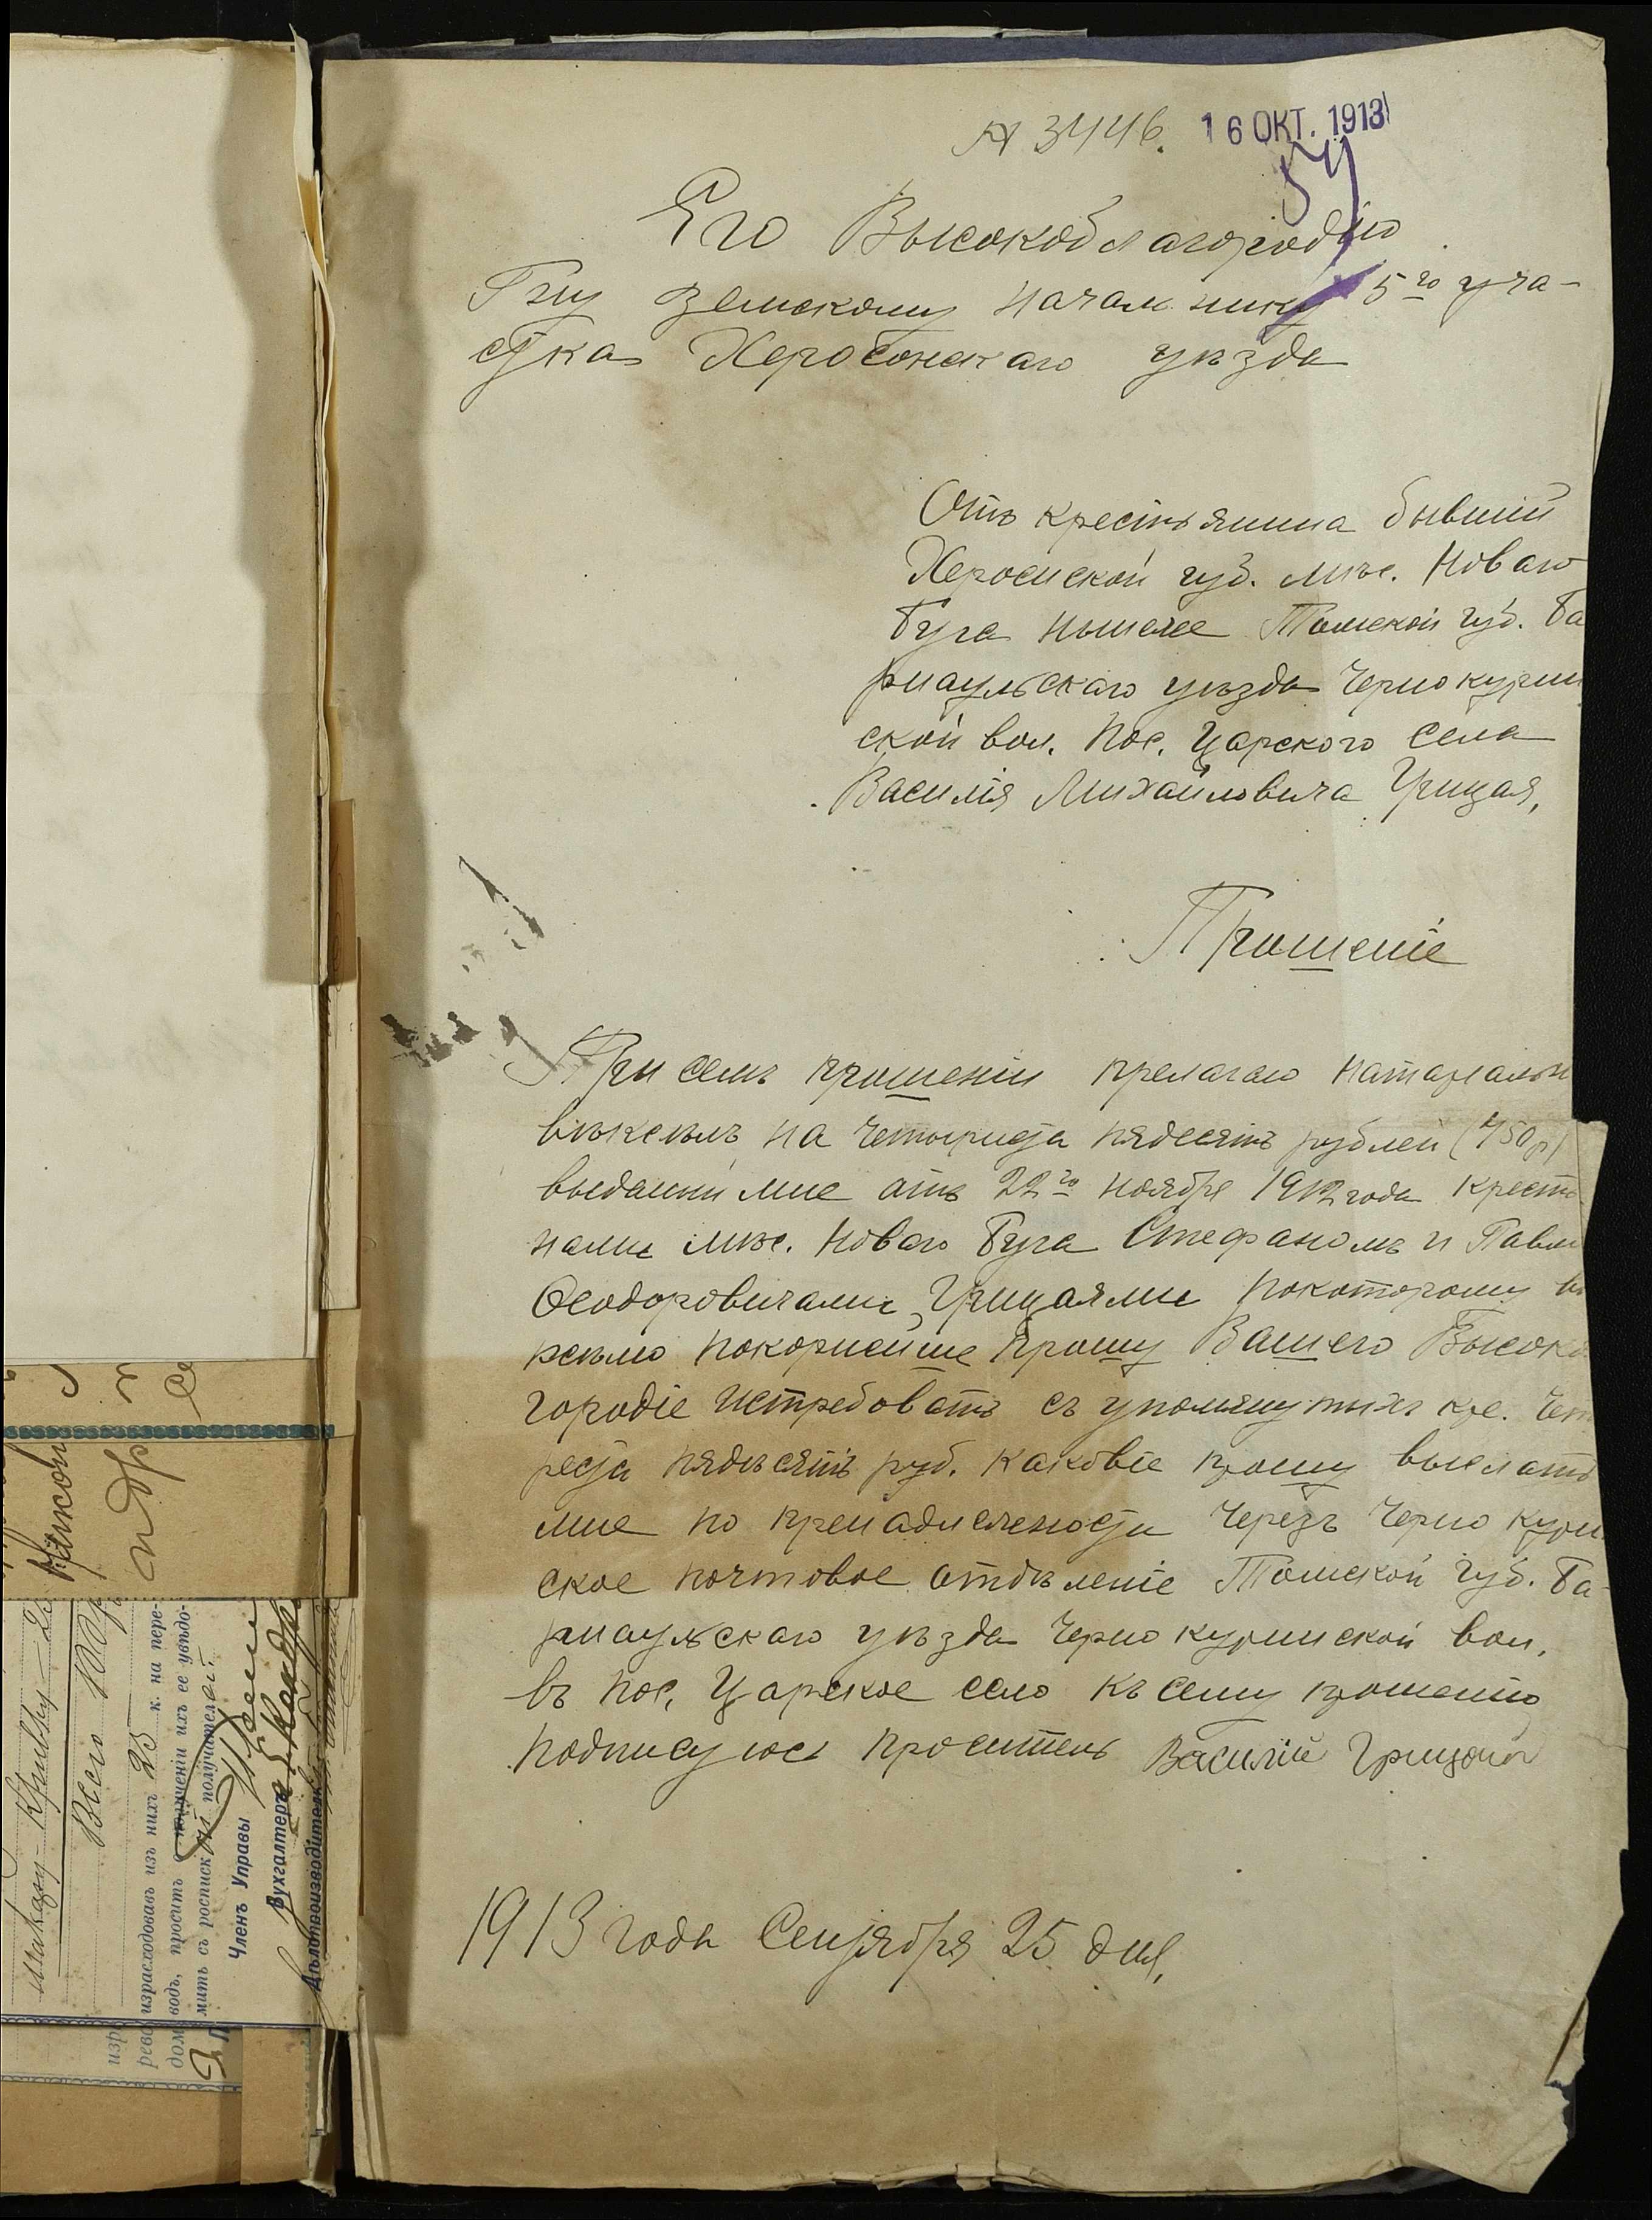 № 3446. 16 ОКТ. 1913
Его Высокоблагородію
Гну Земскому Начальнику 5го уча-
стка Херсонскаго уѣзда
Отъ крестьянина бывший
Херсонской губ. мѣс. Новаго
Буга ныне Томской губ. Ба
рнаульскаго уѣзда Чернокурин
ской вол. пос. Царского Села
Василія Михайловича Грицая,
Прошеніе
При семъ прошеніи прелагаю натариальн
вѣксель на четыриста пядесятъ рублей (450р)
выданый мне отъ 22го ноября 1912 года кресть
нами мѣс. Новаго Буга Стефаномъ и Павло
Феодоровичами Грицаями покоторому в
ксѣлю покорнейше прошу Вашего Высоко
городіе истребовать съ упомянутыхъ кре. Чет
реста пядѣсятъ руб. каковіе прошу выслать
мне по принадлежности Черезъ Черно курин
ское почтовое отдѣленіе Томской губ. Ба-
рнаульскаго уѣзда Черно куринской вол.
въ пос. Царское село къ сему прошению
подписуюсь проситель Василій Грицай
1913 года Сентября 25 дня.
Всего
израсходовавъ изъ нихъ 25 к. на пере-
водъ, проситъ о полученіи ихъ ее увѣдо-
мить съ роспиской получателей.
Членъ Управы
Бухгалтеръ
Дѣлопроизводитель